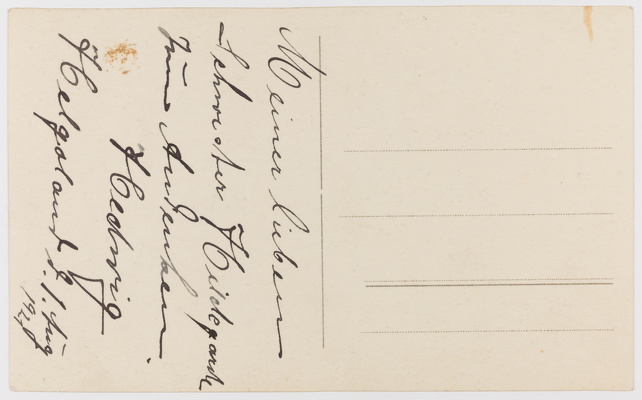 Meiner lieben
Schwester Hildegarde
zum Andenken.
Hedwig
Helgoland d. 1. Aug